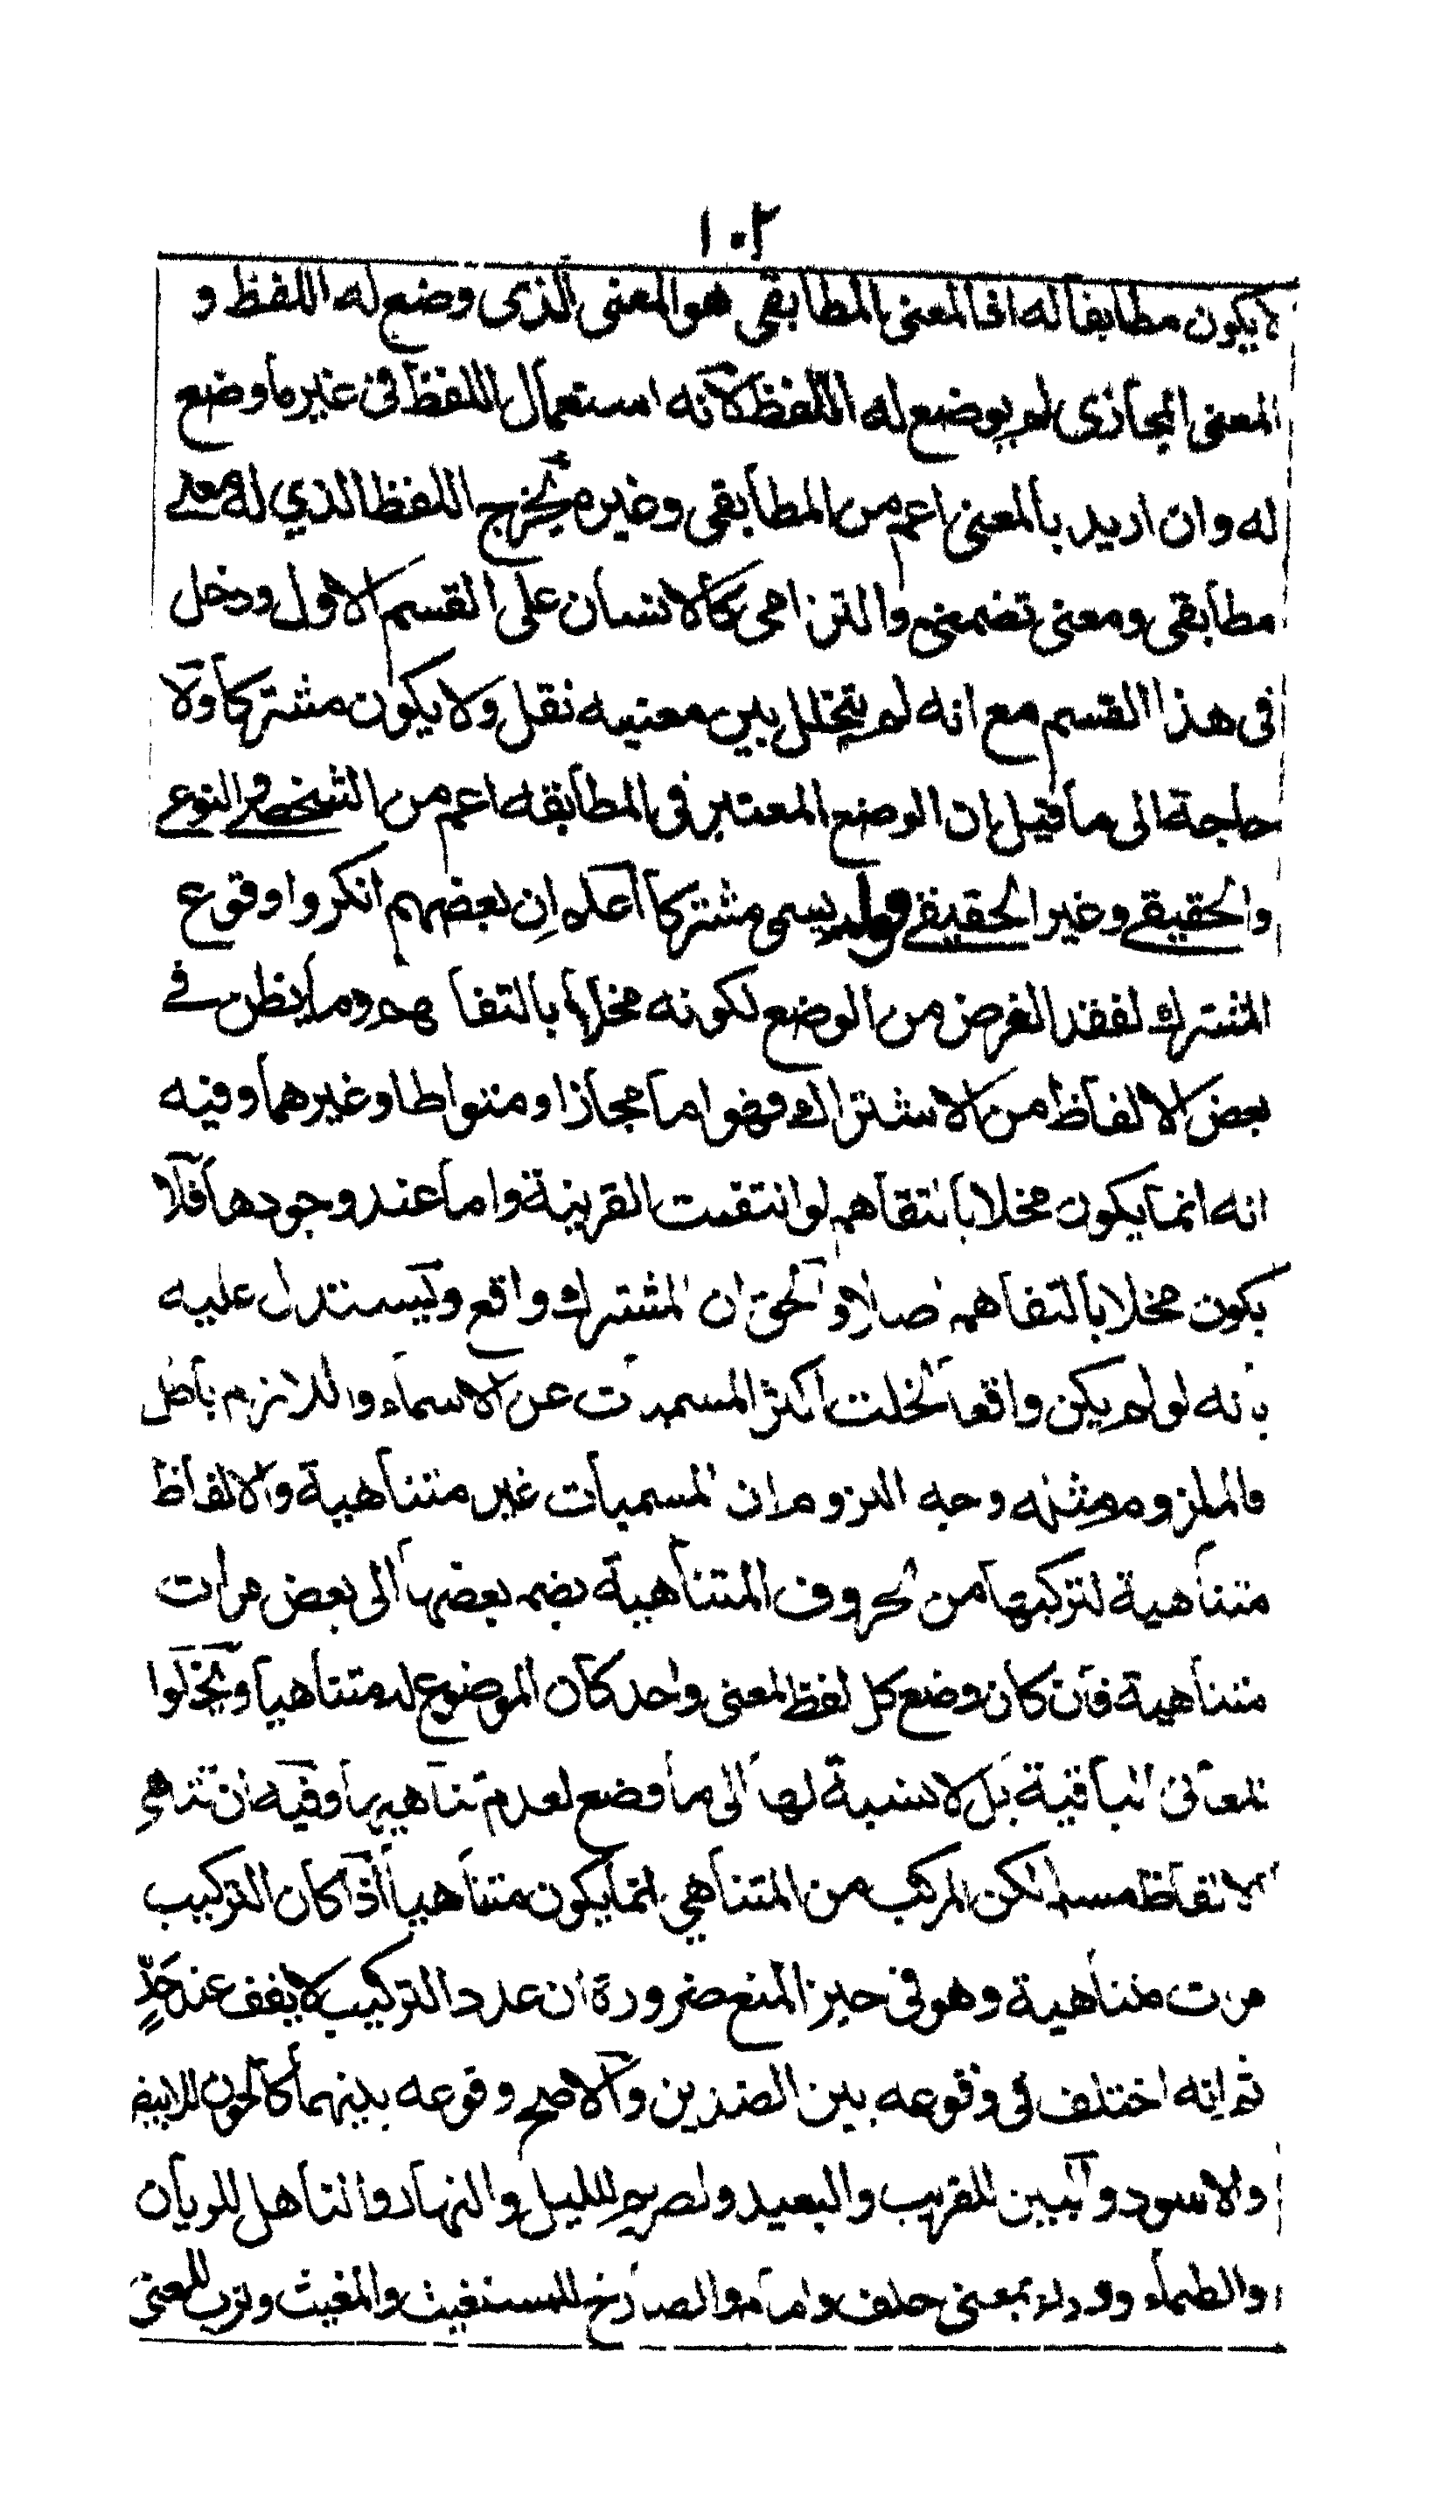 ١٠٢
لا يكون مطابقا له اذ المعنى المطابقى هو المعنى الذى وضع له اللفظ و
المعنى المجازى لم يوضع له اللفظ لأنه استعمال اللفظ فى غير ما وضع
له وان اريد بالمعنى اعم من المطابقى وغيره يخرج اللفظ الذي له معنى
مطابقى ومعنى تضمنى والتزامى كالانسان على القسم الاول ودخل
فى هذا القسم مع انه لم يتخلل بين معنييه نقل ولا يكون مشتركا ولا
حاجة الى ما قيل ان الوضع المعتبر فى المطابقه اعم من الشخصي والنوعي
والحقيقي وغير الحقيقي قوله يسمى مشتركا اعلم ان بعضهم انكروا وقوع
المشترك لفقد الغرض من الوضع لكونه مخلا بالتفاهم وما يظن في
بعض الالفاظ من الاشتراك فهو اما مجاز او متواطا وغيرهما وفيه
انه انما يكون مخلا بالتفاهم لو انتفت القرينة واما عند وجودها فلا
يكون مخلا بالتفاهم اصلا والحق ان المشترك واقع ويستدل عليه
بانه لو لم يكن واقعا لخلت اكثر المسميات عن الاسماء واللازم باطل
فالملزوم مثله وجه اللزوم ان المسميات غير متناهية والالفاظ
متناهية لتركبها من الحروف المتناهية بضم بعضها الى بعض مرات
متناهية فان كان وضع كل لفظ لمعنى واحد كان الموضوع له متناهيا ويخلوا
المعانى الباقية بل لا نسبة لها الى ما وضع لعدم تناهيها وفيه ان تناهي
الالفاظ مسلم لكن المركب من المتناهي انما يكون متناهيا اذا كان التركيب
مرات متناهية وهو فى حيز المنع ضرورة ان عدد التركيب لا يقف عند حدٍّ
ثم انه اختلف فى وقوعه بين الضدين والاصح وقوعه بينهما كالجون للابيض
والاسود والبين للقريب والبعيد والصريم لليل والنهار والناهل للريان
والظمآء ووراء بمعنى خلف وامام والصارخ للمستغيث والمغيث وترب للمعنى